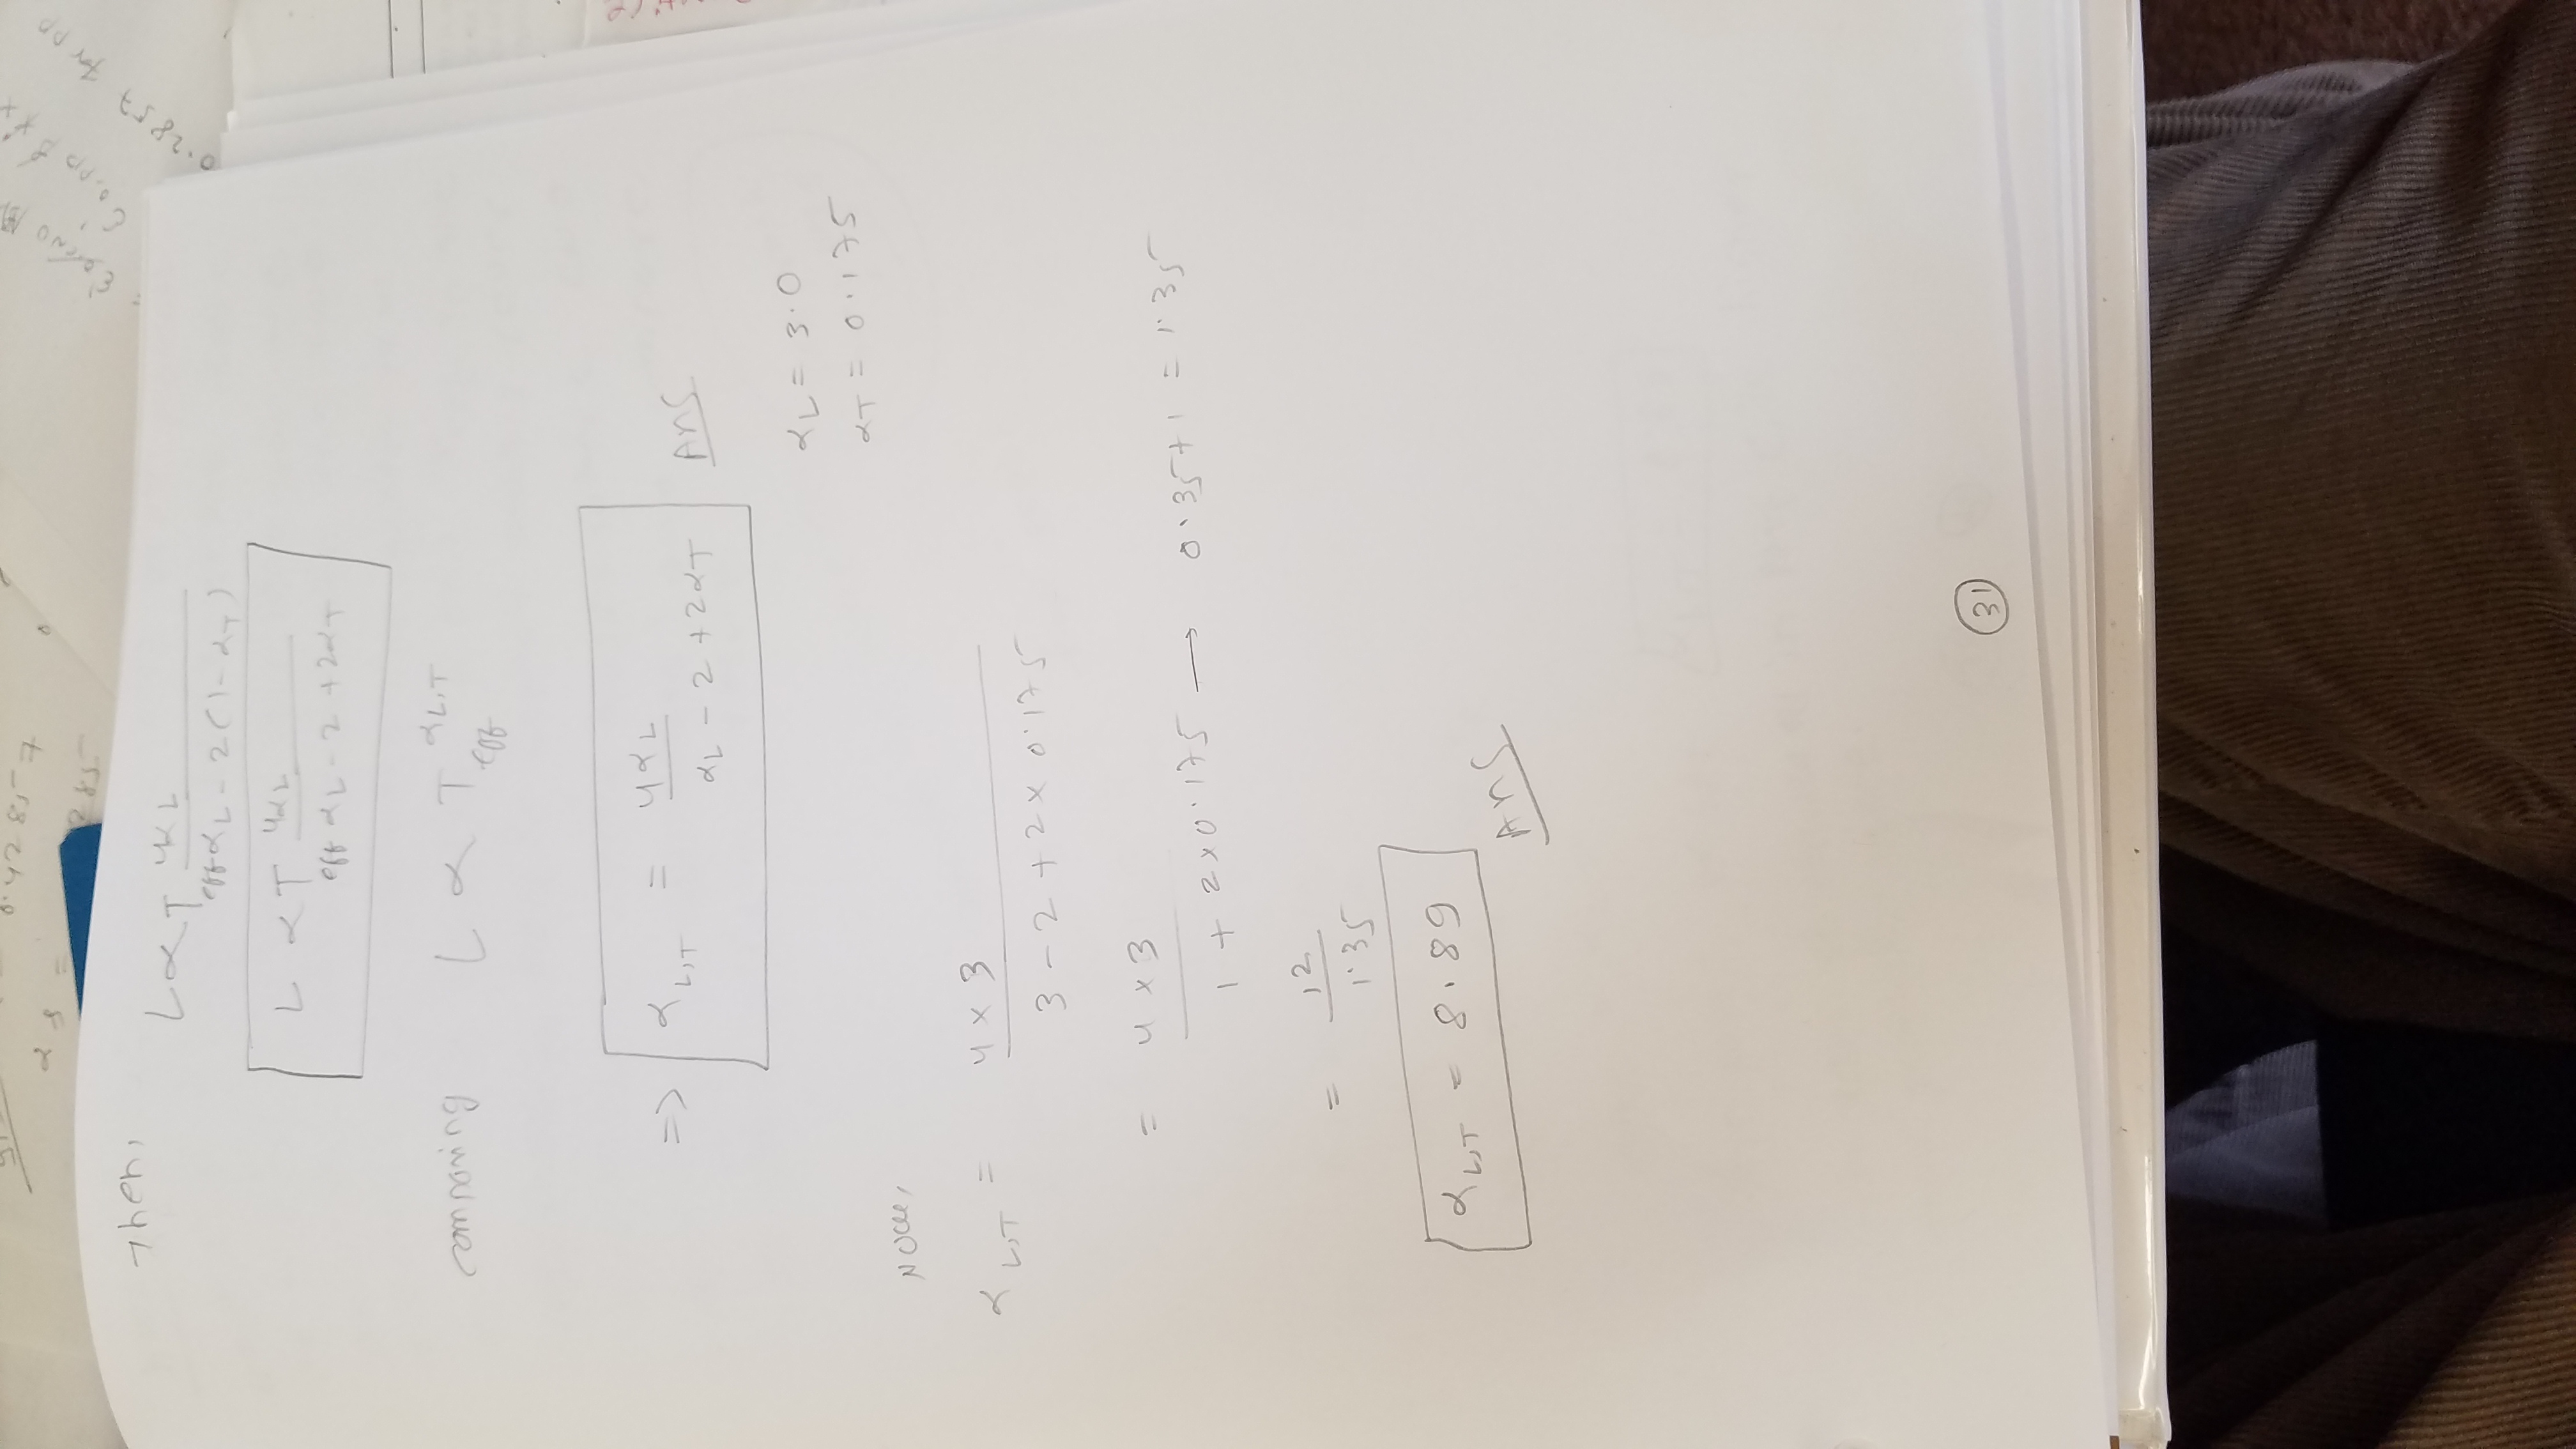 0.42857
α s =
285
ε'
ε'
0.2857 for pp
Then,
L ∝ T_eff^(4αL / αL - 2(1 - αT))
L ∝ T_eff^(4αL / αL - 2 + 2αT)
comparing L ∝ T_eff^αL,T
=> αL,T = 4αL / αL - 2 + 2αT Ans
αL = 3.0
αT = 0.175
Now,
αL,T = 4 × 3 / 3 - 2 + 2 × 0.175
= 4 × 3 / 1 + 2 × 0.175 → 0.35 + 1 = 1.35
= 12 / 1.35
αL,T = 8.89
Ans
31